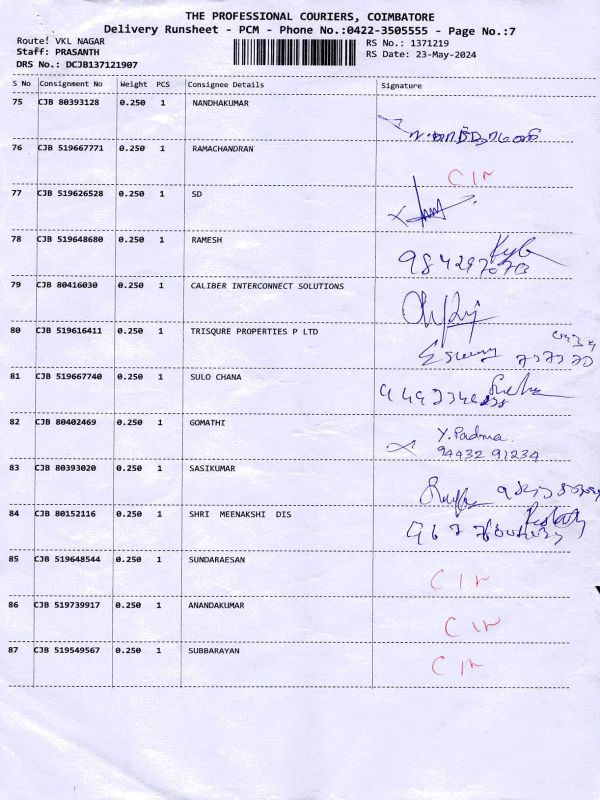 THE PROFESSIONAL COURIERS, COIMBATORE
Delivery Runsheet - PCM - Phone No.:0422-3505555 - Page No.:7
Route: VKL NAGAR RS No.: 1371219
Staff: PRASANTH RS Date: 23-May-2024
DRS No.: DCJB137121907
S No Consignment No Weight PCS Consignee Details Signature
75 CJB 80393128 0.250 1 NANDHAKUMAR
76 CJB 519667771 0.250 1 RAMACHANDRAN
77 CJB 519626528 0.250 1 SD
78 CJB 519648680 0.250 1 RAMESH
79 CJB 80416030 0.250 1 CALIBER INTERCONNECT SOLUTIONS
80 CJB 519616411 0.250 1 TRISQURE PROPERTIES P LTD
81 CJB 519667740 0.250 1 SULO CHANA
82 CJB 80402469 0.250 1 GOMATHI Y. Padma
94432 91234
83 CJB 80393020 0.250 1 SASIKUMAR
84 CJB 80152116 0.250 1 SHRI MEENAKSHI DIS
85 CJB 519648544 0.250 1 SUNDARAESAN
86 CJB 519739917 0.250 1 ANANDAKUMAR
87 CJB 519549567 0.250 1 SUBBARAYAN